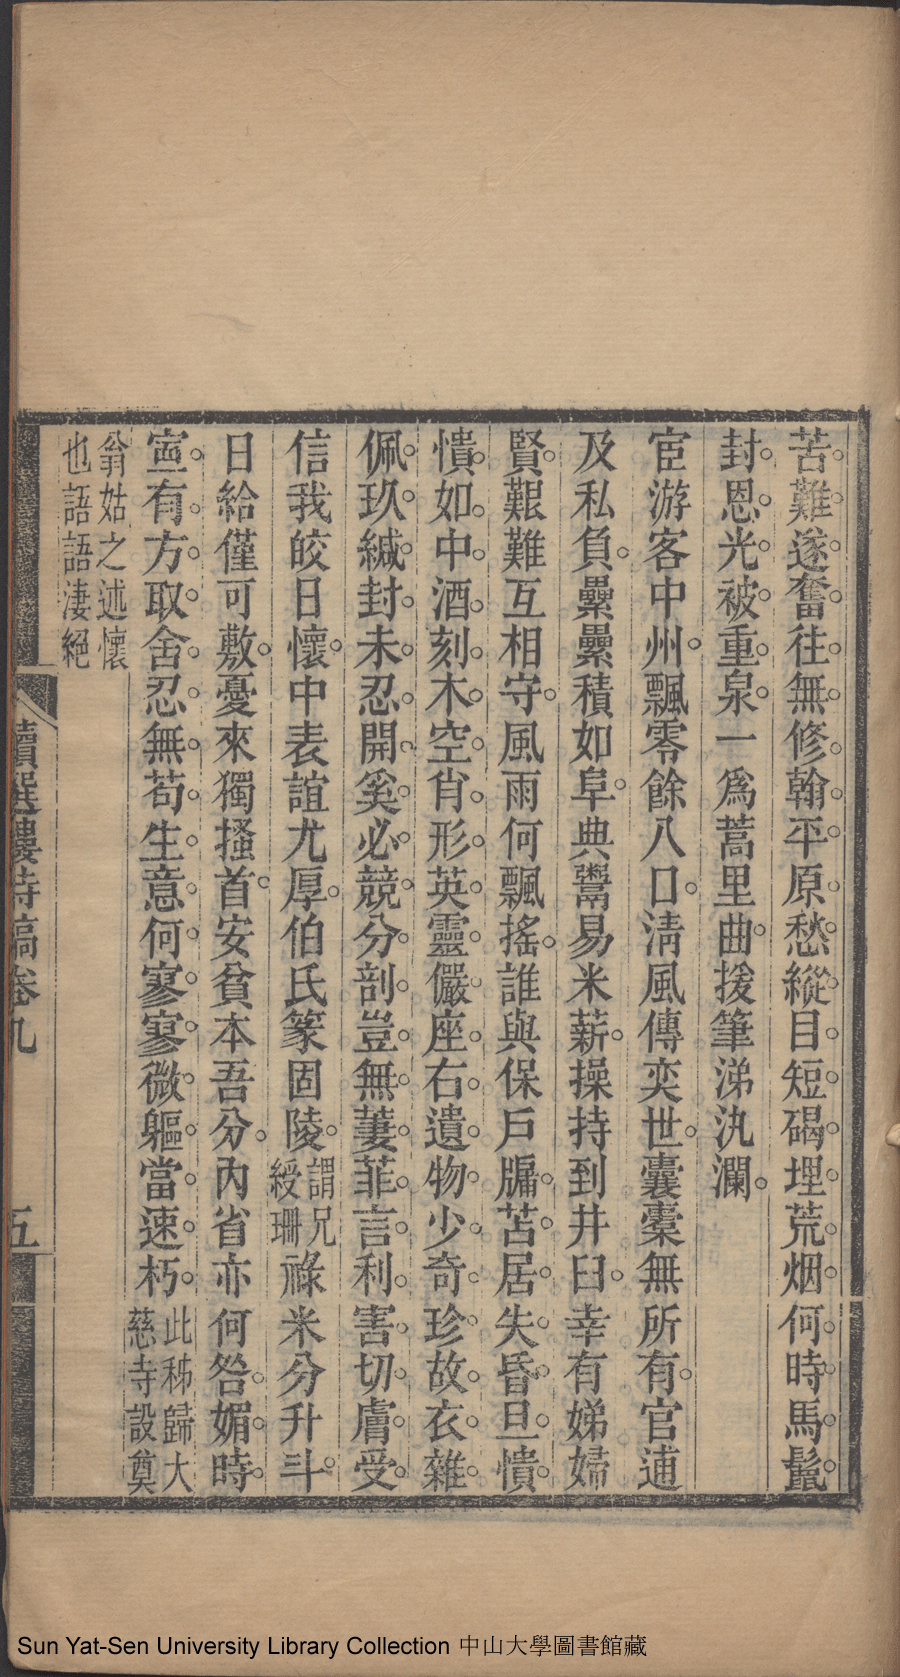 苦難遂奮往無修翰平原愁縱目短碣埋荒烟何時馬鬛
封恩光被重泉一爲蒿里曲援筆涕汍瀾
宦游客中州飄零餘八口淸風傳奕世囊槖無所有官逋
及私負纍纍積如阜典鬻易米薪操持到井臼幸有娣婦
賢艱難互相守風雨何飄搖誰與保戶牖苫居失昏旦憒
憒如中酒刻木空肖形英靈儼座右遺物少奇珍故衣雜
佩玖緘封未忍開奚必競分剖豈無萋菲言利害切膚受
信我皎日懷中表誼尤厚伯氏篆固陵謂兄綬珊祿米分升斗
日給僅可敷憂來獨搔首安貧本吾分內省亦何咎媚時
寍有方取舍忍無苟生意何寥寥微軀當速朽此秭歸大慈寺設奠
翁姑之述懷也語語淒絕
續選樓詩稿卷九
五
Sun Yat-Sen University Library Collection 中山大學圖書館藏